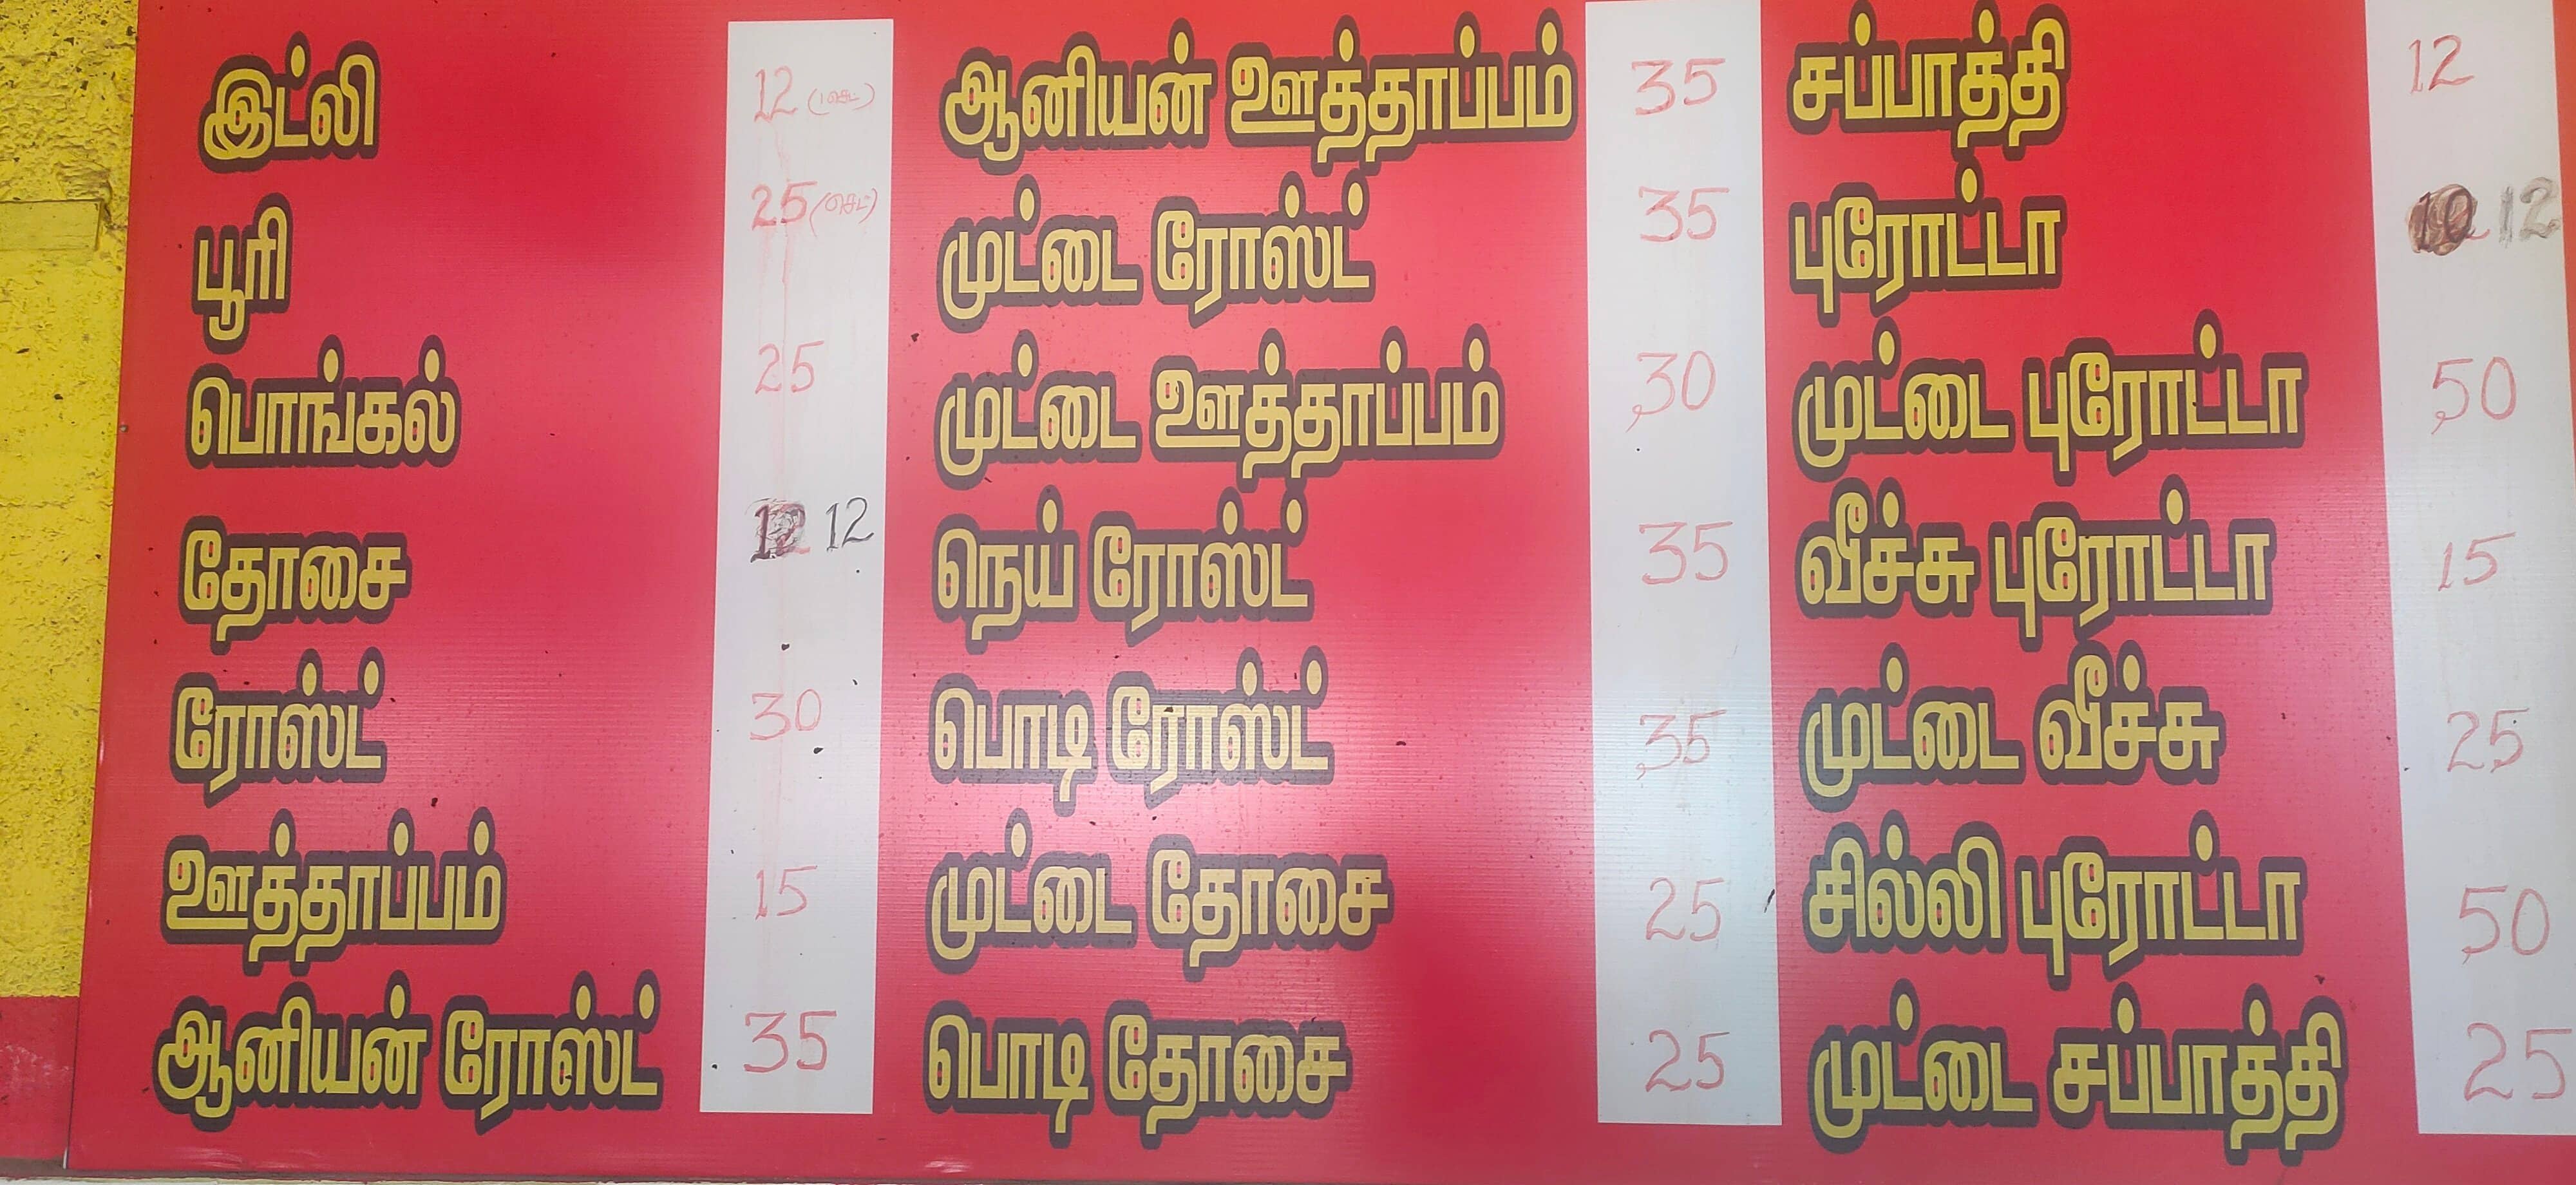 இட்லி 12 (1செட்)
பூரி 25 (செட்)
பொங்கல் 25
தோசை 12
ரோஸ்ட் 30
ஊத்தாப்பம் 15
ஆனியன் ரோஸ்ட் 35
ஆனியன் ஊத்தாப்பம் 35
முட்டை ரோஸ்ட் 35
முட்டை ஊத்தாப்பம் 30
நெய் ரோஸ்ட் 35
பொடி ரோஸ்ட் 35
முட்டை தோசை 25
பொடி தோசை 25
சப்பாத்தி 12
புரோட்டா 12
முட்டை புரோட்டா 50
வீச்சு புரோட்டா 15
முட்டை வீச்சு 25
சில்லி புரோட்டா 50
முட்டை சப்பாத்தி 25